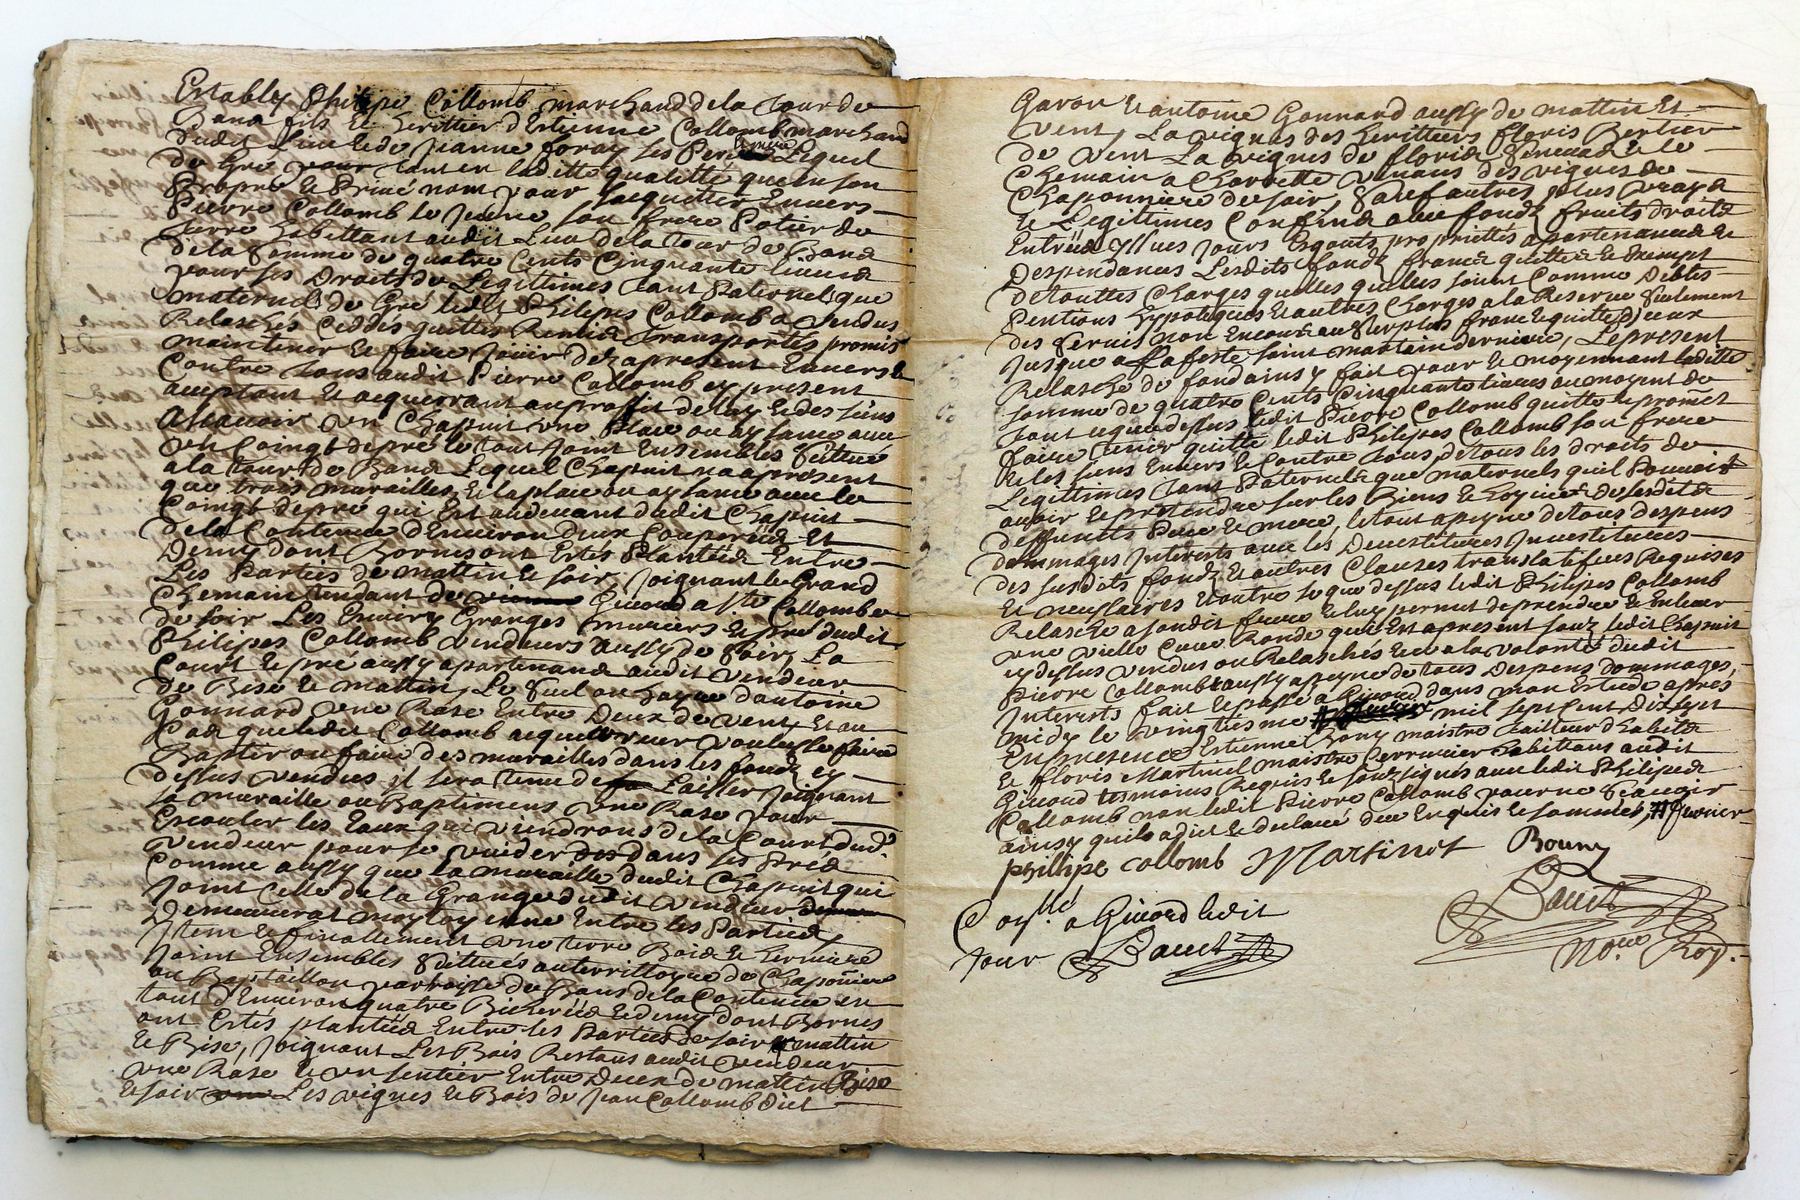 Establÿ Philipe Collomb marchand de la Tour de
Bans fils et herittier d'Estienne Collomb marchand
dudit Lieu et de Jeanne foray ses Pere et mere Lequel
de Gré tant en laditte qualitte que en son
Propre et Privé nom pour s'acquitter Envers
Pierre Collomb le Jeune son frere Potier de
Terre habittant audit Lieu de la Tour de Bans
de la Somme de quatre Cents Cinquante Livres
pour ses Droits de Legittimes tant Paternels que
maternels de Gré ledit Philipes Collomb a Vendus
Relaschés Ceddés quittes Remis Transportés promis
maintenir et faire Jouir dez apresent Envers et
Contre tous audit Pierre Collomb cy present
acceptant et acquerrant au proffit de luy et des siens
Assavoir un Chapuit une Place ou aysance avec
un Coingt de pré le tout Joint Ensembles Scittue
a la Tour de Bans Lequel Chapuit na apresent
que trois murailles, et la place ou aysance avec le
Coingt de pré qui Est audevant dudit Chapuit
de la Contenue d'Environ deux Coupées Et
Demy dont Bornes ont Estés Plantées Entre
Les Parties de mattin et soir, Joignant le Grand
Chemain tendant de Givord a Ste Collombe
de soir Les Granges et pré dudit
Philipes Collomb vendeurs aussy de soir, La
Court et pré aussy apartenans audit vendeur
de Bise et mattin, Le d'antoine
Gonnard une Rase Entre Deux de vent, Et au
Cas que ledit Collomb acquerreur voulu se faire
Bastir ou faire des murailles dans les fonds cy
dessus vendus il sera tenu de Laisser Joignant
sa muraille ou Baptimens une Rase pour
Escouler les Eaux qui viendrons de la Court dud.
vendeur pour se vuider dans ses Prés
Comme aussy que la muraille dudit Chapuit qui
Joint Celle de la Grange dudit vendeur
Demeurerat moytoyenne Entre les Parties
Item et finallement une terre Bois et hermure
Joint Ensembles Scittues au territtoyre de Chaponniere
ou Bouttaillon parroisse de Bans de la Contenue en
tout d'Environ quatre Bicherées et demy dont Bornes
ont Estés plantées Entre les Parties de soir mattin
et Bise, Joignant Les Bois Restans audit vendeur
une Rase et un sentier Entre Deux de mattin Bise
et soir Les vignes et Bois de Jean Collomb dict
Gavon Et antoine Gonnard aussy de mattin Et
vent, La vignes des herittiers floris Bertier
de vent La vignes de floris et le
Chemain a Charrette venans des vignes de
Chaponniere de soir, Sauf autres plus vrays
et Legittimes Confins avec fonds fruits droits
Entrées yssues Jours Esgouts propriettés apartenances et
Despendances Lesdits fonds francs quittes et Exempts
de touttes Charges quelles quelles soient Comme Debtes
Pentions hypoteques et autres Charges a la Reserve seulement
des Servis non Encourus au Surplus franc et quitte d'iceux
Jusque a La feste saint martain derniere, Le present
Relasché de fonds ainsy fait pour et moyennant laditte
somme de quatre Cents Cinquante Livres au moyent de
tout ce que dessus ledit Pierre Collomb quitte et promet
faire tenir quitte ledit Philipes Collomb son frere
et les siens Envers et Contre tous de tous les droits de
Legittimes tant Paternels que maternels quil Pouvoit
avoir et pretendre sur les Biens et hoyries de Sesdits
deffuncts Pere et mere, le tout a peyne de tous despens
dommages Interests avec les Devestitures Investitures
des susdits fonds et autres Clauses translatifves Requises
Et necessaires Et outre ce que dessus ledit Philipes Collomb
Relasche a sondit frere Et luy permet de prendre et Enlever
une vielle Cuve Ronde qui Est apresent souz ledit Chapuit
cy dessus vendus ou Relaschés Et a la volonté dudit
Pierre Collomb aussy a peyne de tous Despens dommages,
Interests fait et passé a Givord dans mon Estude aprés
midy le vingtiesme mil sept cent Dix sept
En presence d'Estienne Bony maistre tailleur d'habits
et floris Martinet maistre serrurier habittans audit
Givord tesmoins Requis et souzsignés avec ledit Philipes
Collomb non ledit Pierre Collomb pour ne scavoir
ainsy quil a dict et declaré deue Enquis et sommés, # fevrier
phillipe collomb Martinet Bouny
Controllé a Givord ledit
Jour
Nore Roy.